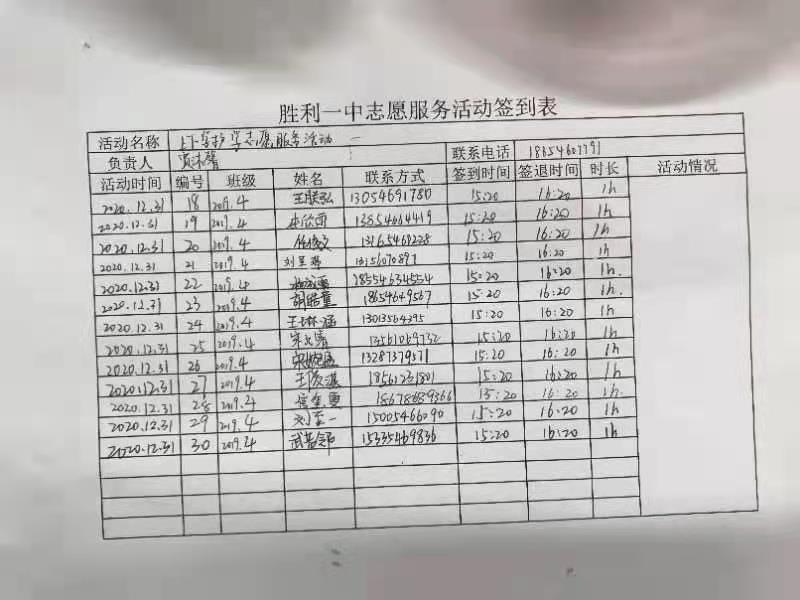 胜利一中志愿服务活动签到表
活动名称 上下学护学志愿服务活动
负责人 联系电话
活动时间 编号 班级 姓名 联系方式 签到时间 签退时间 时长 活动情况
2020.12.31 18 2019.4 13054691780 15:20 16:20 1h
2020.12.31 19 2019.4 13854664419 15:20 16:20 1h
2020.12.31 20 2019.4 13165469228 15:20 16:20 1h
2020.12.31 21 2019.4 13156070897 15:20 16:20 1h
2020.12.31 22 2019.4 18554634554 15:20 16:20 1h.
2020.12.31 23 2019.4 胡皓童 18654649567 15:20 16:20 1h.
2020.12.31 24 2019.4 13013564395 15:20 16:20 1h
2020.12.31 25 2019.4 13561069732 15:20 16:20 1h
2020.12.31 26 2019.4 13287379571 15:20 16:20 1h
2020.12.31 27 2019.4 18561231801 15:20 16:20 1h
2020.12.31 28 2019.4 18678689366 15:20 16:20 1h
2020.12.31 29 2019.4 刘奕一 15005466090 15:20 16:20 1h
2020.12.31 30 2019.4 15335469836 15:20 16:20 1h